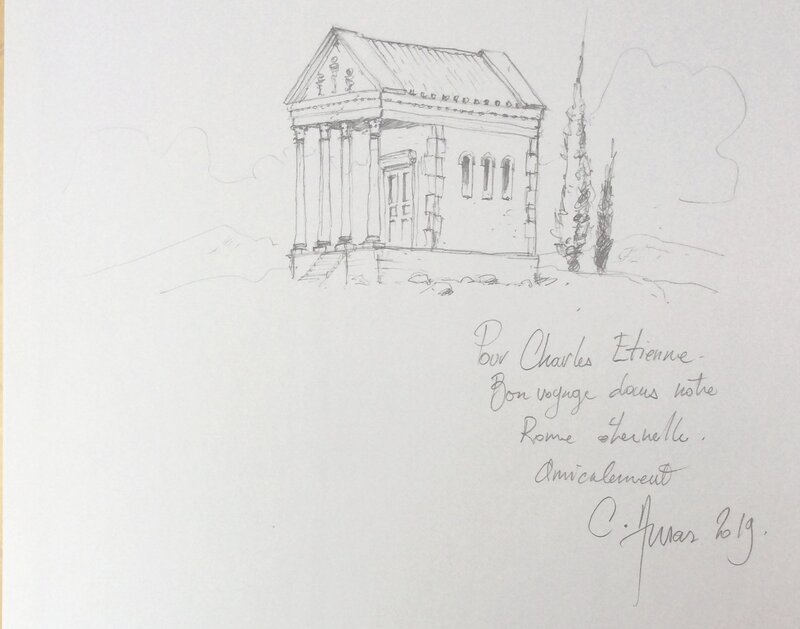 Pour Charles Etienne.
Bon voyage dans notre
Rome éternelle.
Amicalement
C. 2019.